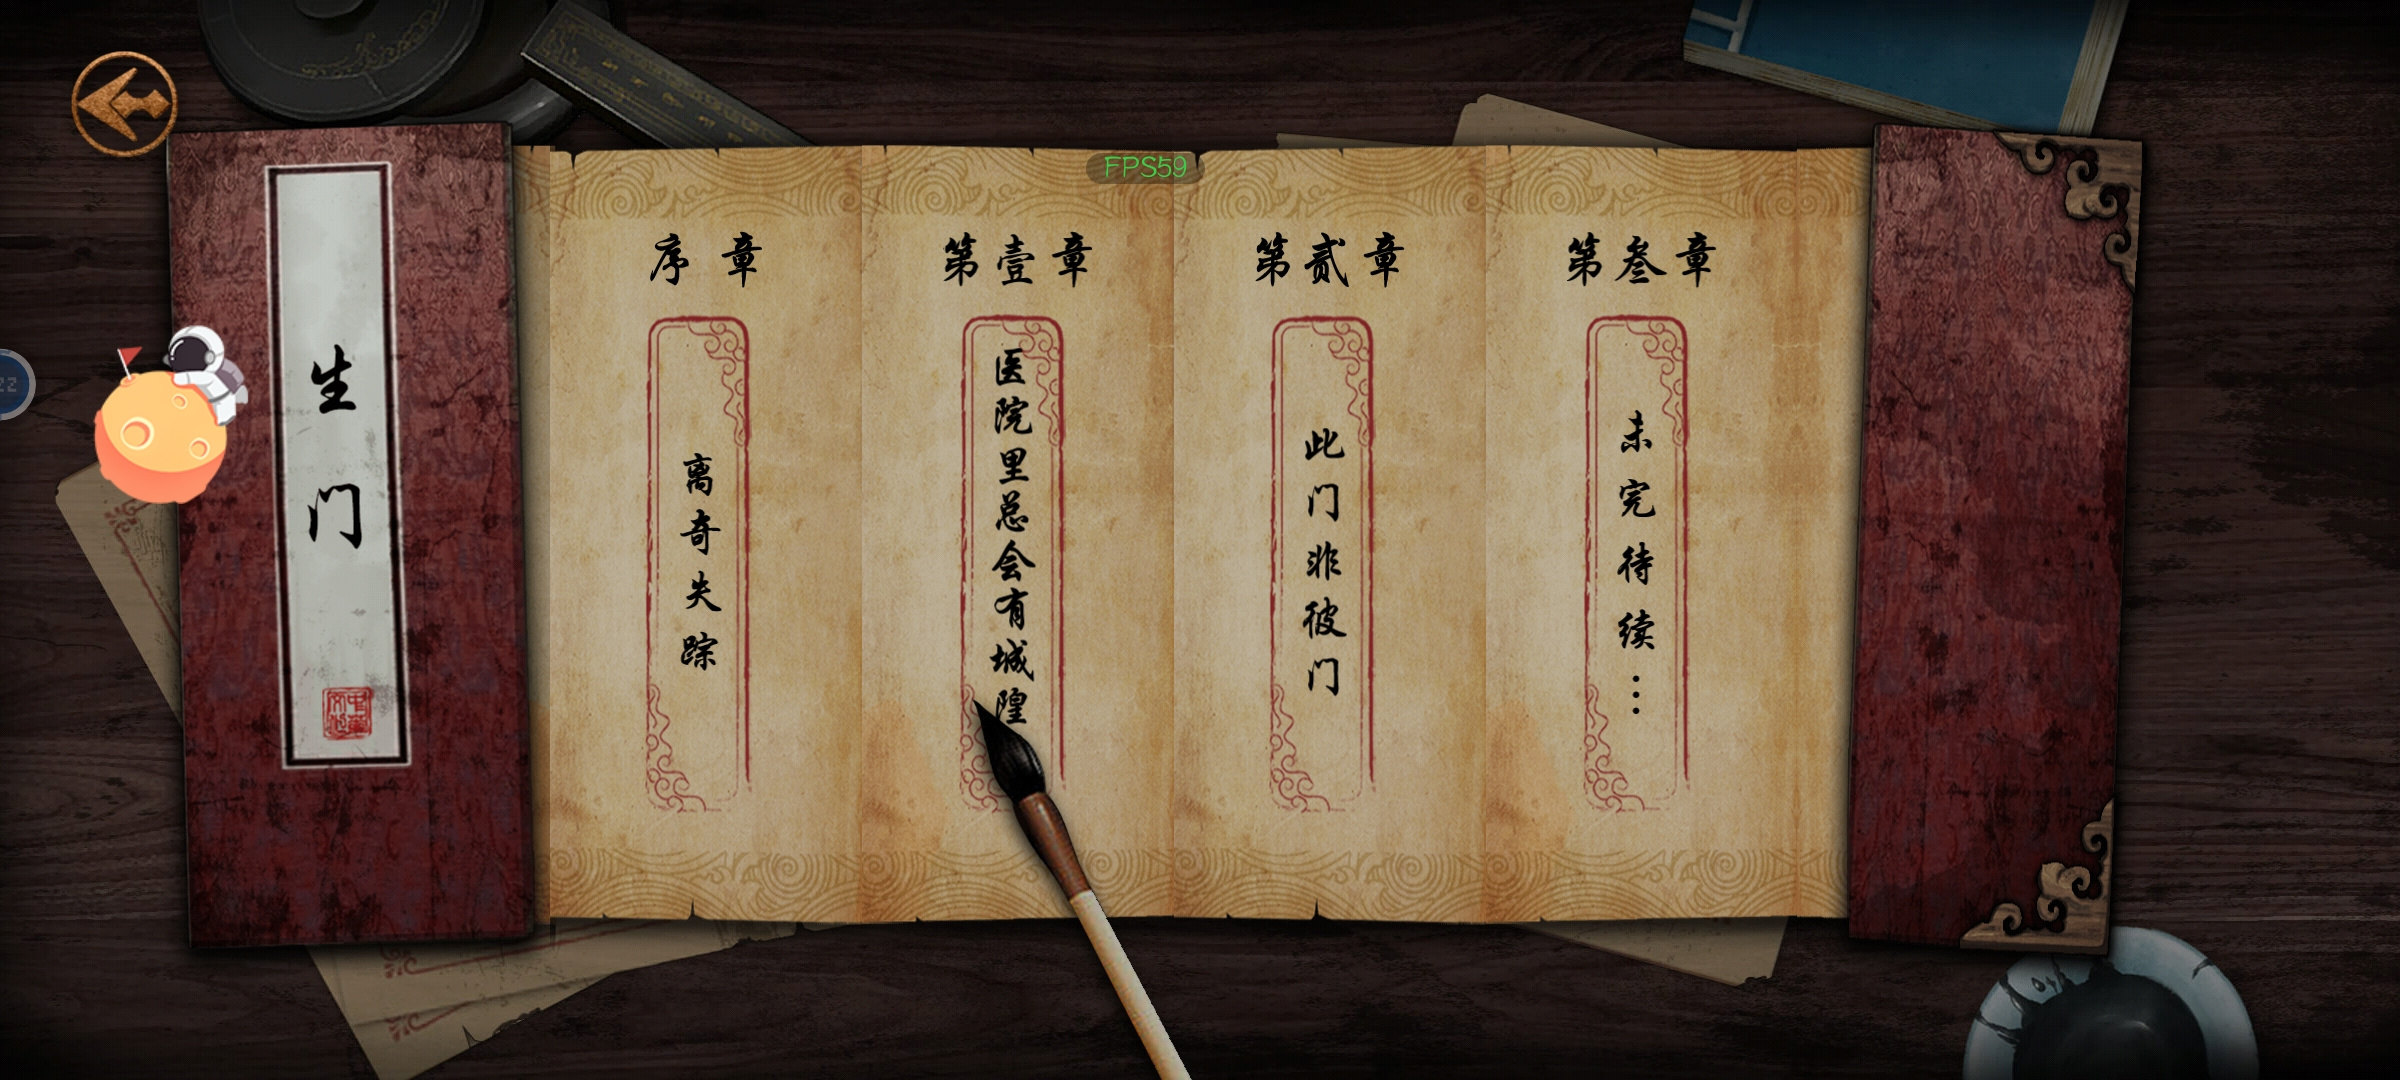 FPS59
生门
序章
离奇失踪
第壹章
医院里总会有城隍
第贰章
此门非彼门
第叁章
未完待续…
22